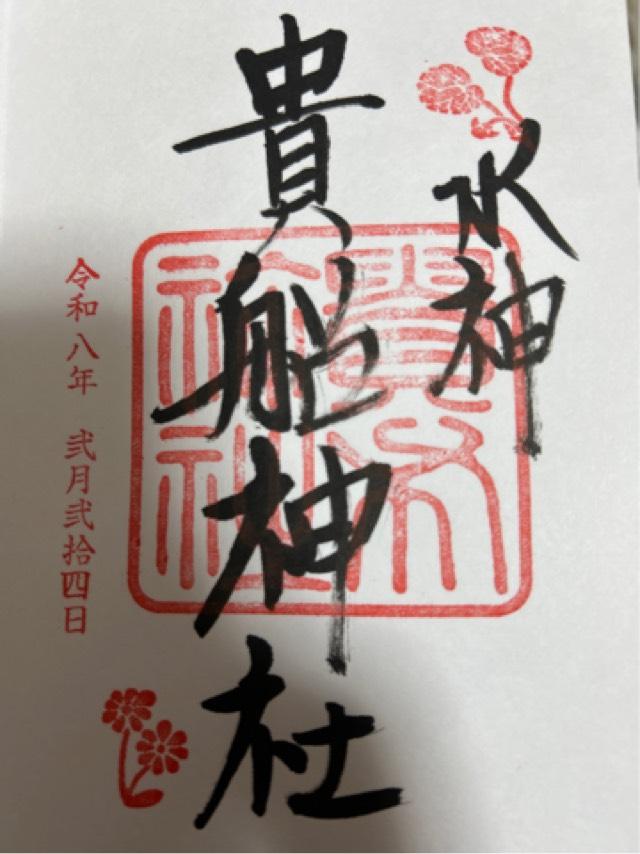 水神
貴船神社
令和八年 弐月弐拾四日